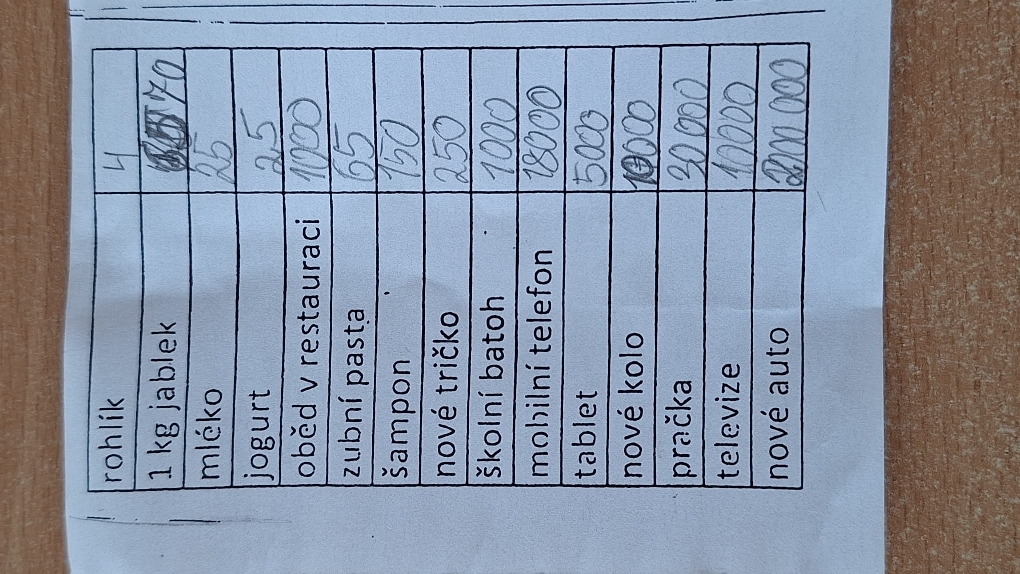 rohlík 4
1 kg jablek 70
mléko 25
jogurt 25
oběd v restauraci 1000
zubní pasta 65
šampon 150
nové tričko 250
školní batoh 1000
mobilní telefon 18000
tablet 5000
nové kolo
pračka 30 000
televize 10000
nové auto